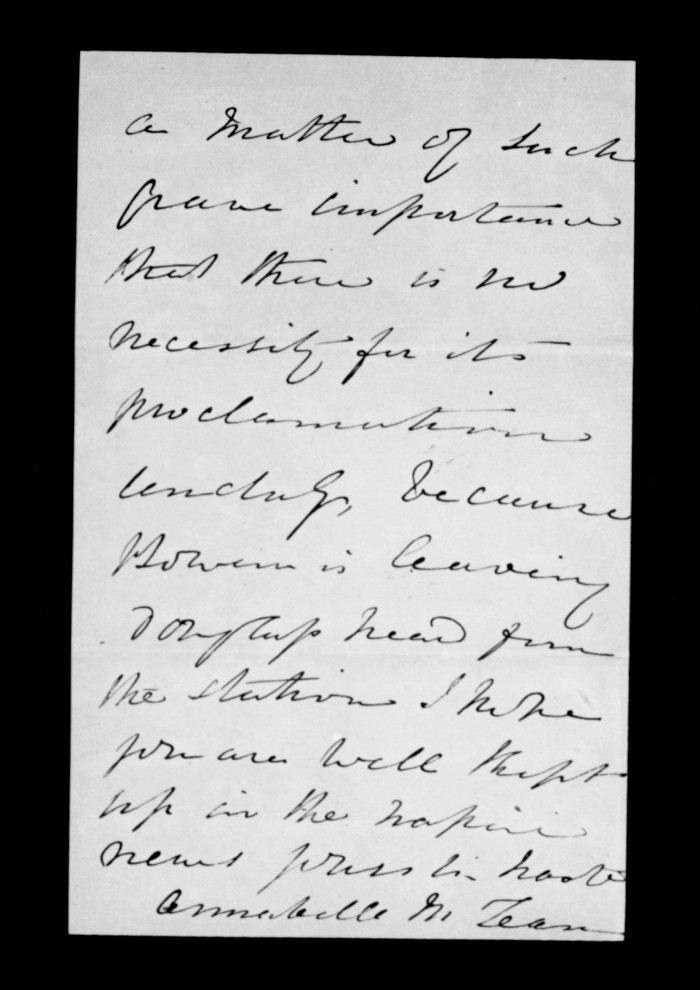 a matter of such
grave importance
that there is no
necessity for its
proclamation
unduly, because
Bowen is leaving
Douglass heard from
the station I hope
you are well & kept
up in the Napier
news yours in haste
Annabella McLean